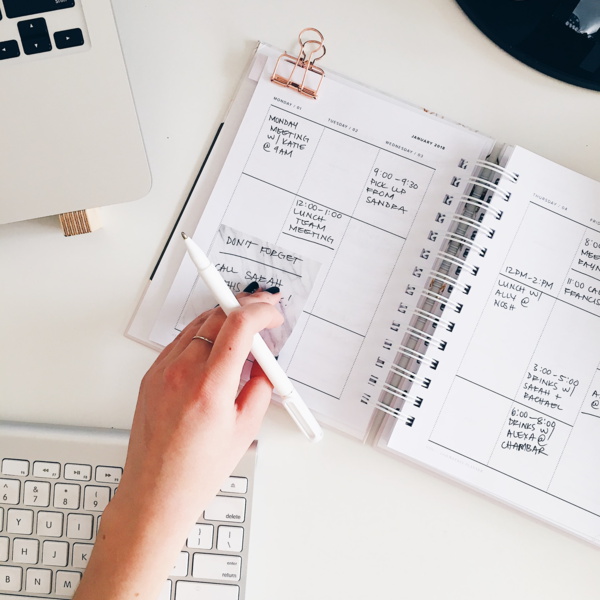 JANUARY 2018
MONDAY / 01
TUESDAY / 02
WEDNESDAY / 03
MONDAY
MEETING
W/ KATIE
@ 9AM
9:00-9:30
PICK UP
FROM
SANDRA
12:00-1:00
LUNCH
TEAM
MEETING
DON'T FORGET
CALL SARAH
THURSDAY / 04
12PM-2PM
LUNCH W/
ALLY @
NOSH
3:00-5:00
DRINKS W/
SARAH +
RACHAEL
6:00-8:00
DRINKS W/
ALEXA @
CHAMBAR
11:00
6
&
7
*
8
(
9
Y
U
I
H
J
K
B
N
M
delete
return